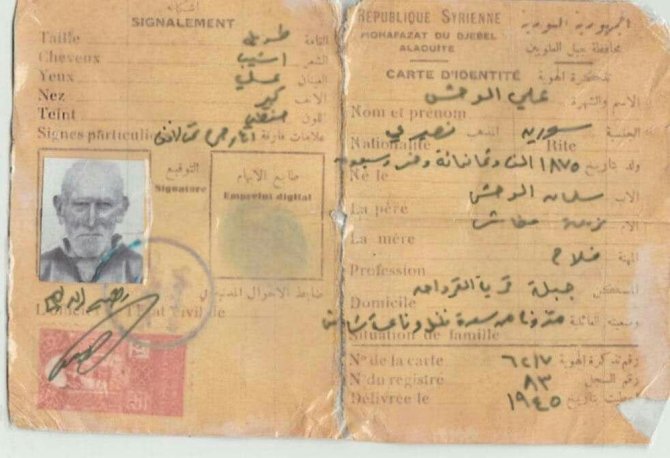 SIGNALEMENT
Taille طويل القامة
Cheveux اشيب الشعر
Yeux عسلي العينان
Nez كبير الانف
Teint حنطي اللون
Signes particuli علامات فارقة
التوقيع
Signature
طابع الابهام
Empreint digital
ضابط الاحوال المدنية
RÉPUBLIQUE SYRIENNE الجمهورية السورية
MOHAFAZAT DU DJEBEL ALAOUITE محافظة جبل العلويين
CARTE D'IDENTITÉ تذكرة الهوية
الاسم والشهرة علي الوحش
Nom et prénom
الجنسية سورية المذهب نصيري
Nationalité Rite
ولد بتاريخ ١٨٧٥ الف وثمانمائة وخمس وسبعون
Né le
الاب سلمان الوحش
La père
الام
La mère
المهنة فلاح
Profession
المسكن جبلة قرية القرداحه
Domicile
وضعيته العائلية
Situation de famille
Nº de la carte ٦٢/٧ رقم تذكرة الهوية
Nº du registre ٨٣ رقم السجل
Délivrée le ١٩٤٥ اعطيت بتاريخ